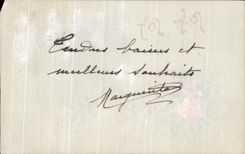 Tendres baisers et
meilleurs souhaits
Marguerite